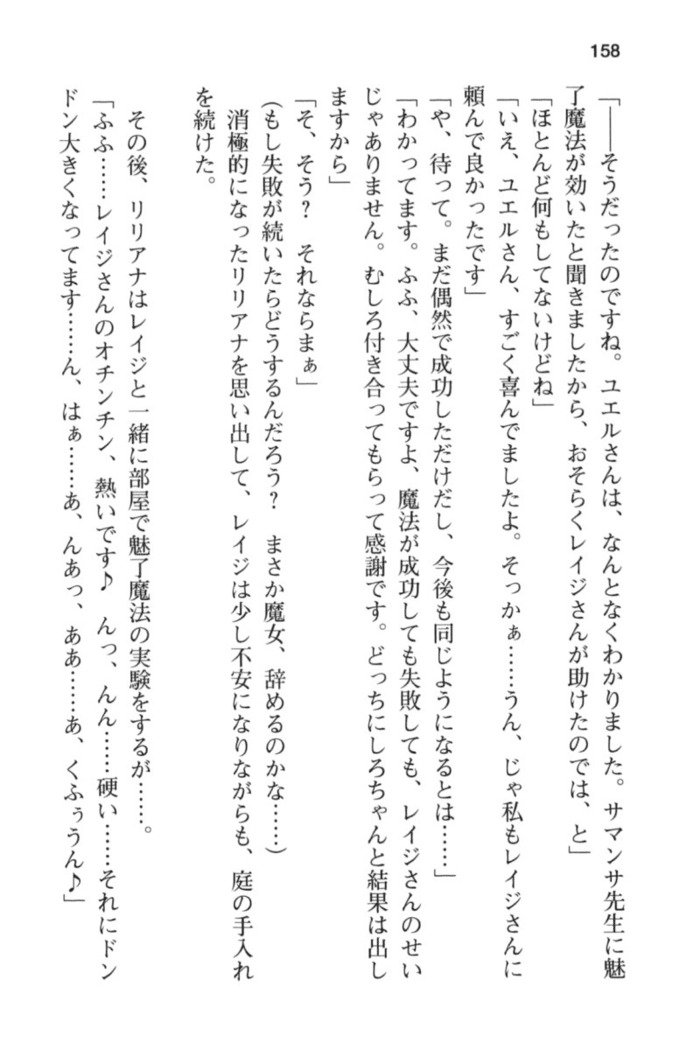 158
「――そうだったのですね。ユエルさんは、なんとなくわかりました。サマンサ先生に魅
了魔法が効いたと聞きましたから、おそらくレイジさんが助けたのでは、と」
「ほとんど何もしてないけどね」
「いえ、ユエルさん、すごく喜んでましたよ。そっかぁ……うん、じゃ私もレイジさんに
頼んで良かったです」
「や、待って。まだ偶然で成功しただけだし、今後も同じようになるとは……」
「わかってます。ふふ、大丈夫ですよ、魔法が成功しても失敗しても、レイジさんのせい
じゃありません。むしろ付き合ってもらって感謝です。どっちにしろちゃんと結果は出し
ますから」
「そ、そう？　それならまぁ」
（もし失敗が続いたらどうするんだろう？　まさか魔女、辞めるのかな……）
消極的になったリリアナを思い出して、レイジは少し不安になりながらも、庭の手入れ
を続けた。
その後、リリアナはレイジと一緒に部屋で魅了魔法の実験をするが……。
「ふふ……レイジさんのオチンチン、熱いです♪　んっ、んん……硬い……それにドン
ドン大きくなってます……ん、はぁ……あ、んあっ、ああ……あ、くふぅうん♪」